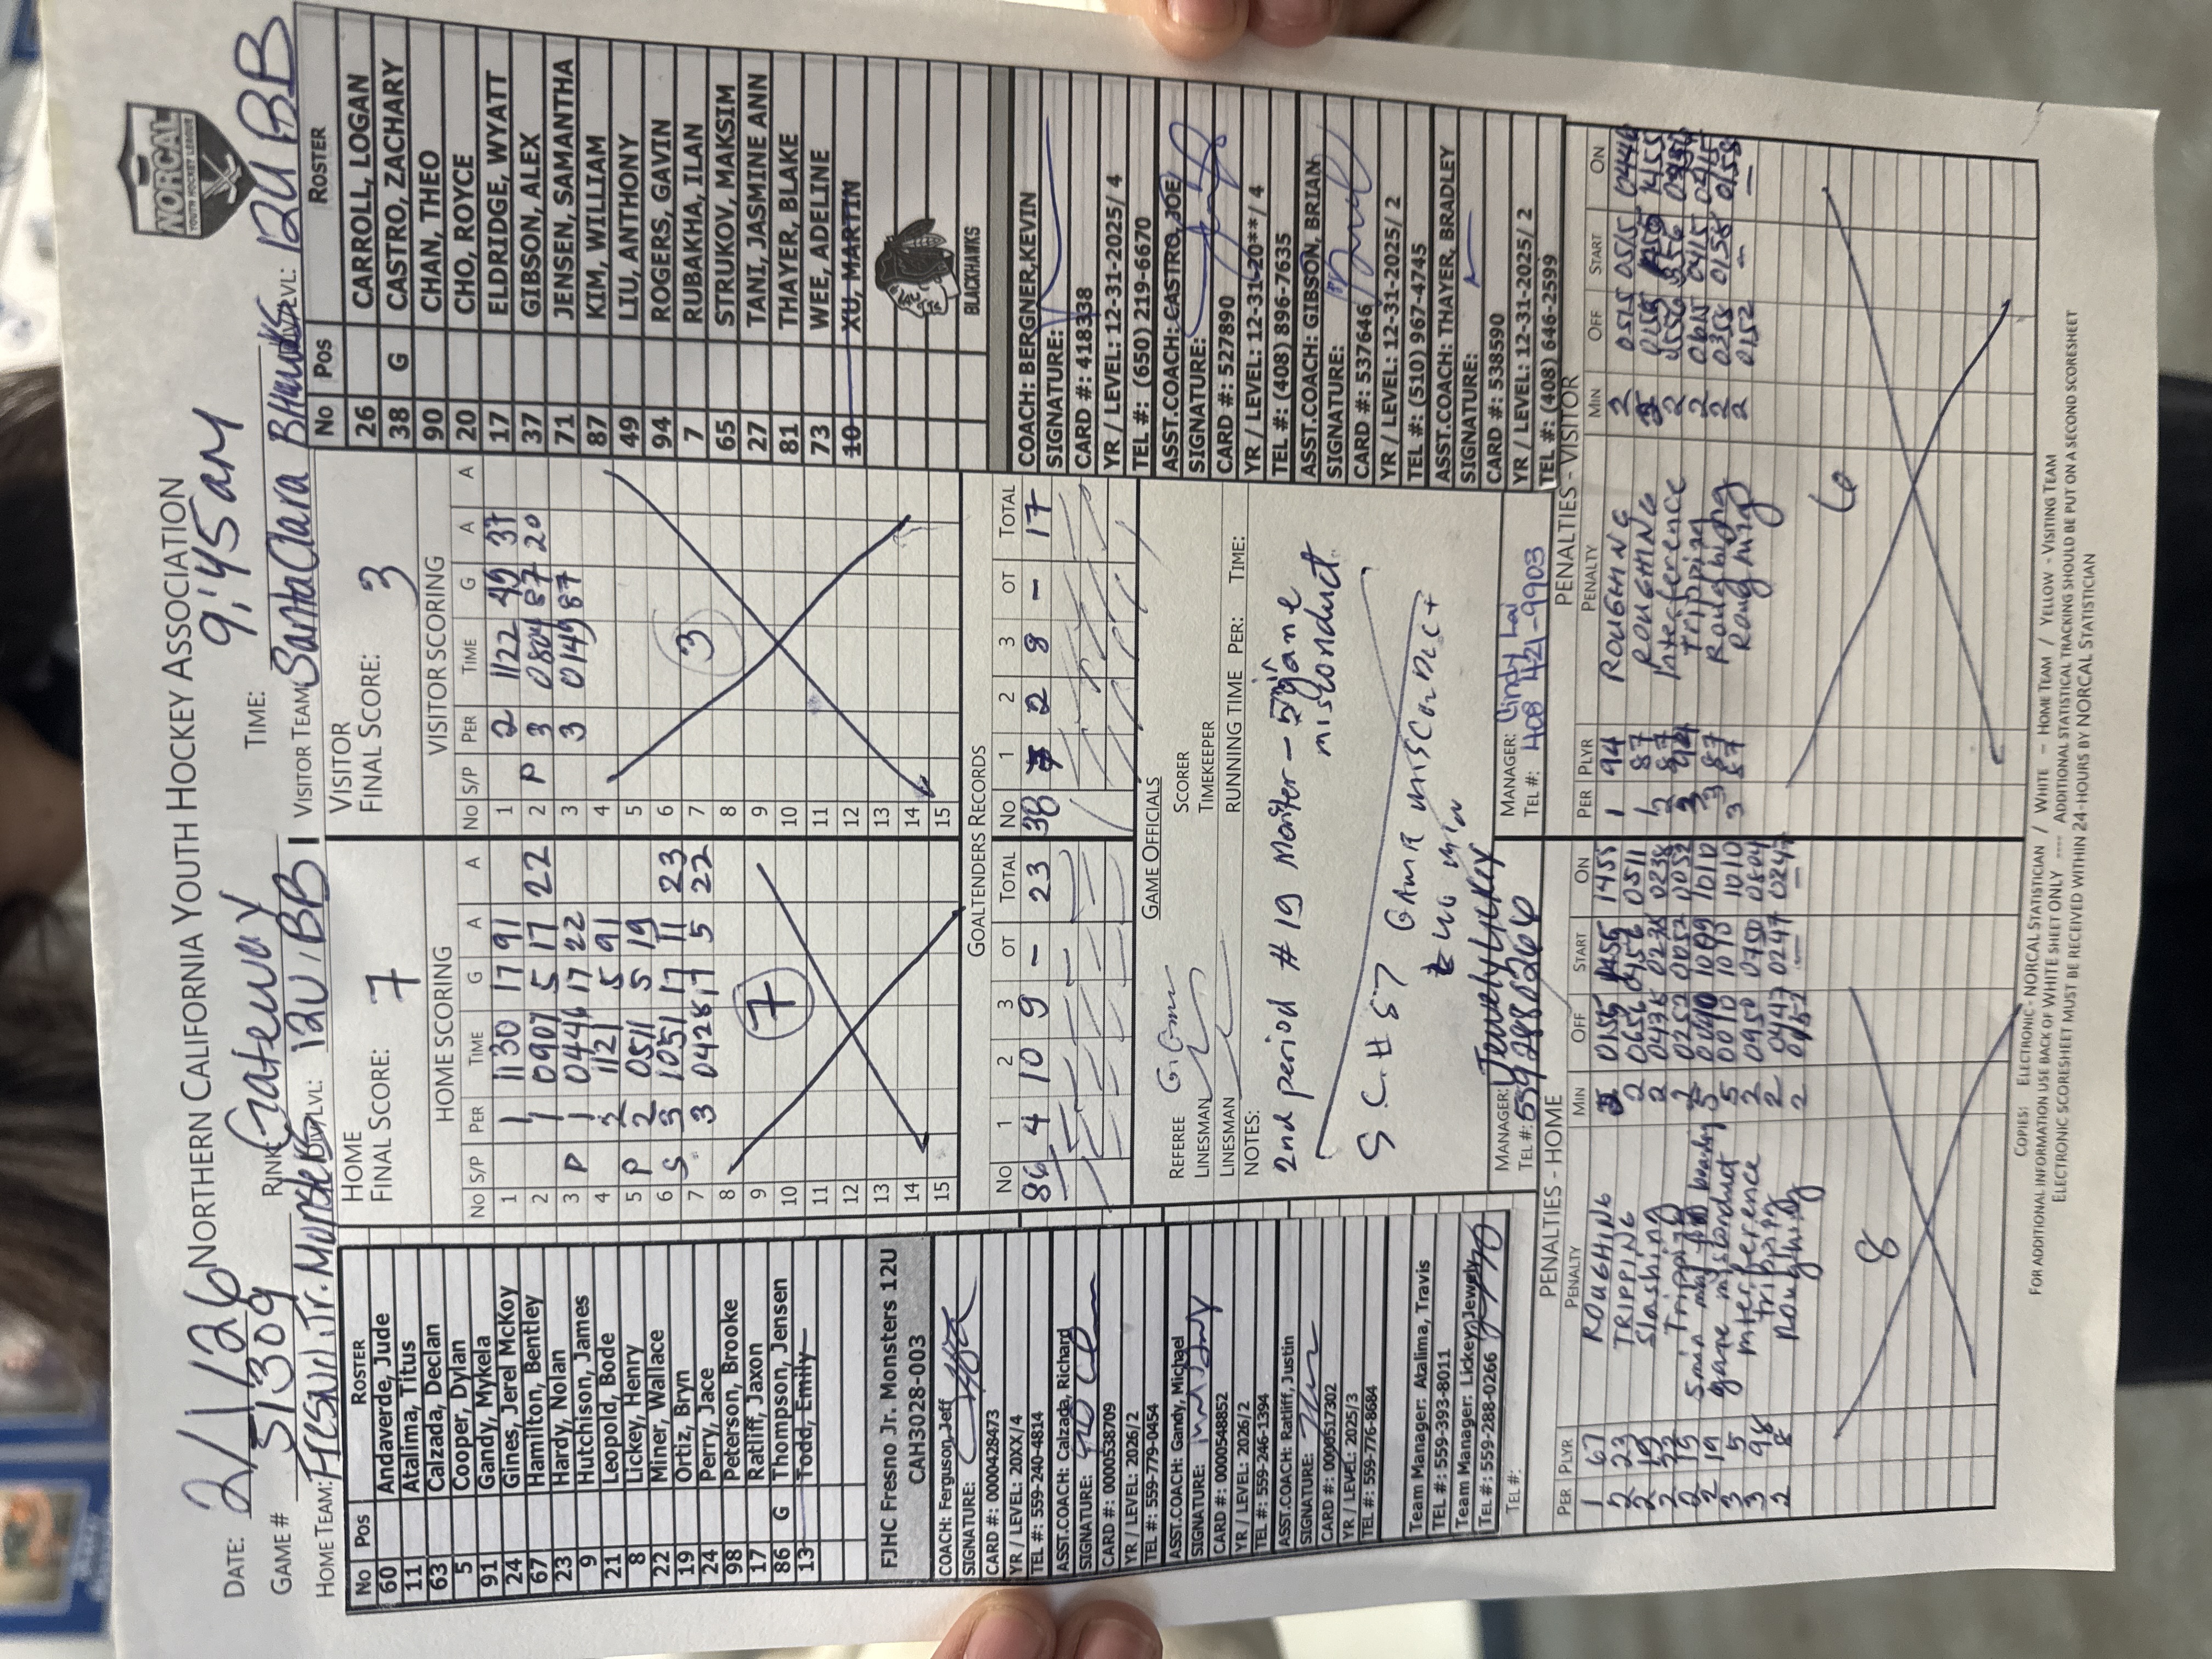 NORTHERN CALIFORNIA YOUTH HOCKEY ASSOCIATION
NORCAL
YOUTH HOCKEY LEAGUE
DATE: 2/1/26
RINK: Gateway
TIME: 9:45 am
GAME # 51309
HOME TEAM: Fresno Jr. Monsters LVL: 12U BB
VISITOR TEAM: Santa Clara BHawks LVL: 12U BB
No Pos ROSTER
60 Andaverde, Jude
11 Atalima, Titus
63 Calzada, Declan
5 Cooper, Dylan
91 Gandy, Mykela
24 Gines, Jerel McKoy
67 Hamilton, Bentley
23 Hardy, Nolan
9 Hutchison, James
21 Leopold, Bode
8 Lickey, Henry
22 Miner, Wallace
19 Ortiz, Bryn
24 Perry, Jace
98 Peterson, Brooke
17 Ratliff, Jaxon
86 G Thompson, Jensen
13 Todd, Emily
FJHC Fresno Jr. Monsters 12U
CAH3028-003
COACH: Ferguson, Jeff
SIGNATURE:
CARD #: 0000428473
YR / LEVEL: 20XX/4
TEL #: 559-240-4814
ASST.COACH: Calzada, Richard
SIGNATURE:
CARD #: 0000538709
YR / LEVEL: 2026/2
TEL #: 559-779-0454
ASST.COACH: Gandy, Michael
SIGNATURE:
CARD #: 0000548852
YR / LEVEL: 2026/2
TEL #: 559-246-1394
ASST.COACH: Ratliff, Justin
SIGNATURE:
CARD #: 0000517302
YR / LEVEL: 2025/3
TEL #: 559-776-8684
Team Manager: Atalima, Travis
TEL #: 559-393-8011
Team Manager: Lickey, Jewely
TEL #: 559-288-0266
TEL #:
HOME
FINAL SCORE: 7
HOME SCORING
No S/P PER TIME G A A
1 1 1130 17 91
2 1 0907 5 17 22
3 P 1 0446 17 22
4 2 1121 5 91
5 P 2 0511 5 19
6 S 3 1051 17 11 23
7 3 0428 17 5 22
8
9
10
11
12
13
14
15
7
VISITOR
FINAL SCORE: 3
VISITOR SCORING
No S/P PER TIME G A A
1 2 1122 49 37
2 P 3 0804 87 20
3 3 0149 87
4
5
6
7
8
9
10
11
12
13
14
15
3
GOALTENDERS RECORDS
No 1 2 3 OT TOTAL
86 4 10 9 - 23
No 1 2 3 OT TOTAL
38 7 2 8 - 17
GAME OFFICIALS
REFEREE
SCORER
LINESMAN
TIMEKEEPER
LINESMAN
RUNNING TIME PER: TIME:
NOTES:
2nd period #19 Monster - game
misconduct
S.C. # 87 GAME MISCONDUCT
MANAGER: Jewely Lickey
TEL #: 559 288 0266
MANAGER: Cindy Lai
TEL #: 408 421-9903
No Pos ROSTER
26 CARROLL, LOGAN
38 G CASTRO, ZACHARY
90 CHAN, THEO
20 CHO, ROYCE
17 ELDRIDGE, WYATT
37 GIBSON, ALEX
71 JENSEN, SAMANTHA
87 KIM, WILLIAM
49 LIU, ANTHONY
94 ROGERS, GAVIN
7 RUBAKHA, ILAN
65 STRUKOV, MAKSIM
27 TANI, JASMINE ANN
81 THAYER, BLAKE
73 WEE, ADELINE
10 XU, MARTIN
BLACKHAWKS
COACH: BERGNER, KEVIN
SIGNATURE:
CARD #: 418338
YR / LEVEL: 12-31-2025/ 4
TEL #: (650) 219-6670
ASST.COACH: CASTRO, JOE
SIGNATURE:
CARD #: 527890
YR / LEVEL: 12-31-20**/ 4
TEL #: (408) 896-7635
ASST.COACH: GIBSON, BRIAN
SIGNATURE:
CARD #: 537646
YR / LEVEL: 12-31-2025/ 2
TEL #: (510) 967-4745
ASST.COACH: THAYER, BRADLEY
SIGNATURE:
CARD #: 538590
YR / LEVEL: 12-31-2025/ 2
TEL #: (408) 646-2599
PENALTIES - HOME
PER PLYR PENALTY MIN OFF START ON
1 67 ROUGHING 2 0155 1455 1455
2 23 TRIPPING 2 0656 0456 0511
2 19 Slashing 2 0438 0238 0238
2 Tripping 2 0252 0052 0052
2 19 5 min maj 5 0010 1009 1010
2 19 game misconduct 5 0010 1010 1010
3 5 interference 2 0950 0750 0804
3 98 tripping 2 0447 0247 0247
2 8 Roughing 2 0152
8
PENALTIES - VISITOR
PER PLYR PENALTY MIN OFF START ON
1 94 ROUGHING 2 0515 0515 0446
1 87 ROUGHING 2 0155 1455
2 87 Interference 2 0556
3 94 Tripping 2 0615 0415 0415
3 87 Roughing 2 0358 0158 0158
3 87 Roughing 2 0152 — —
6
COPIES: ELECTRONIC - NORCAL STATISTICIAN / WHITE - HOME TEAM / YELLOW - VISITING TEAM
FOR ADDITIONAL INFORMATION USE BACK OF WHITE SHEET ONLY ---- ADDITIONAL STATISTICAL TRACKING SHOULD BE PUT ON A SECOND SCORESHEET
ELECTRONIC SCORESHEET MUST BE RECEIVED WITHIN 24-HOURS BY NORCAL STATISTICIAN